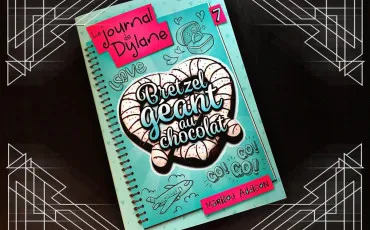 Le journal
de
Dylane
7
LOVE
Bretzel
géant
au
chocolat
GO! GO!
GO!
Marilou Addison